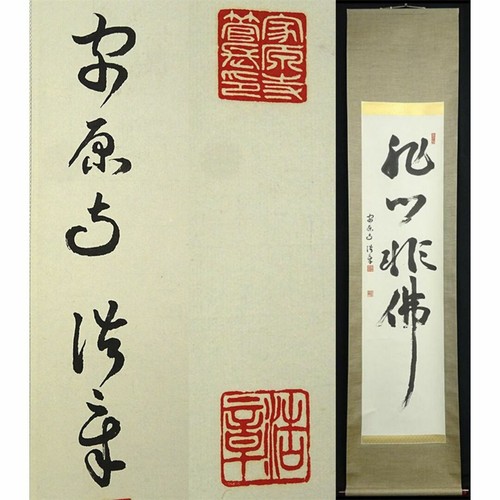 家原寺 浩章
家原寺
管長印
浩章
非心非佛
家原寺 浩章